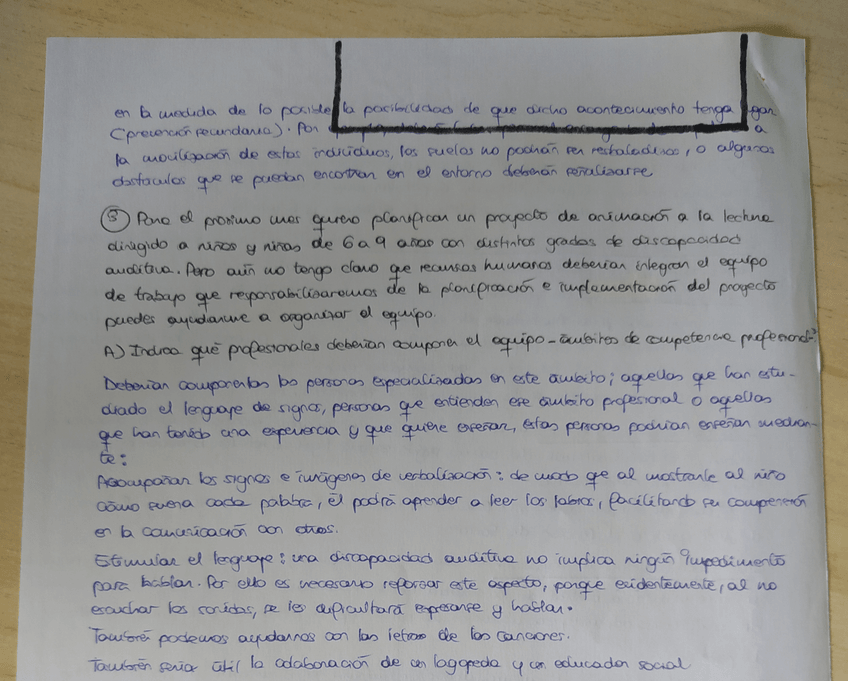 en la medida de lo posible la posibilidad de que dicho acontecimiento tenga
(prevención secundaria). Por a
la movilización de estos individuos, los suelos no podrán ser resbaladizos, o algunos
obstáculos que se puedan encontrar en el entorno deberán señalizarse
③ Para el próximo mes quiero planificar un proyecto de animación a la lectura
dirigido a niños y niñas de 6 a 9 años con distintos grados de discapacidad
auditiva. Pero aún no tengo claro que recursos humanos deberían integrar el equipo
de trabajo que responsabilizaremos de la planificación e implementación del proyecto
puedes ayudarme a organizar el equipo.
A) Indica qué profesionales deberían componer el equipo - ámbitos de competencia profesional-?
Deberían componerlos las personas especializadas en este ámbito; aquellas que han estu-
diado el lenguaje de signos, personas que entienden ese ámbito profesional o aquellas
que han tenido una experiencia y que quiere enseñar, estas personas podrían enseñar median-
te:
Acompañar los signos e imágenes de verbalización: de modo que al mostrarle al niño
cómo suena cada palabra, él podrá aprender a leer los labios, facilitando su comprensión
en la comunicación con otros.
Estimular el lenguaje: una discapacidad auditiva no implica ningún impedimento
para hablar. Por ello es necesario reforzar este aspecto, porque evidentemente, al no
escuchar los sonidos, se les dificultará expresarse y hablar.
También podemos ayudarnos con las letras de las canciones.
También sería útil la colaboración de un logopeda y un educador social